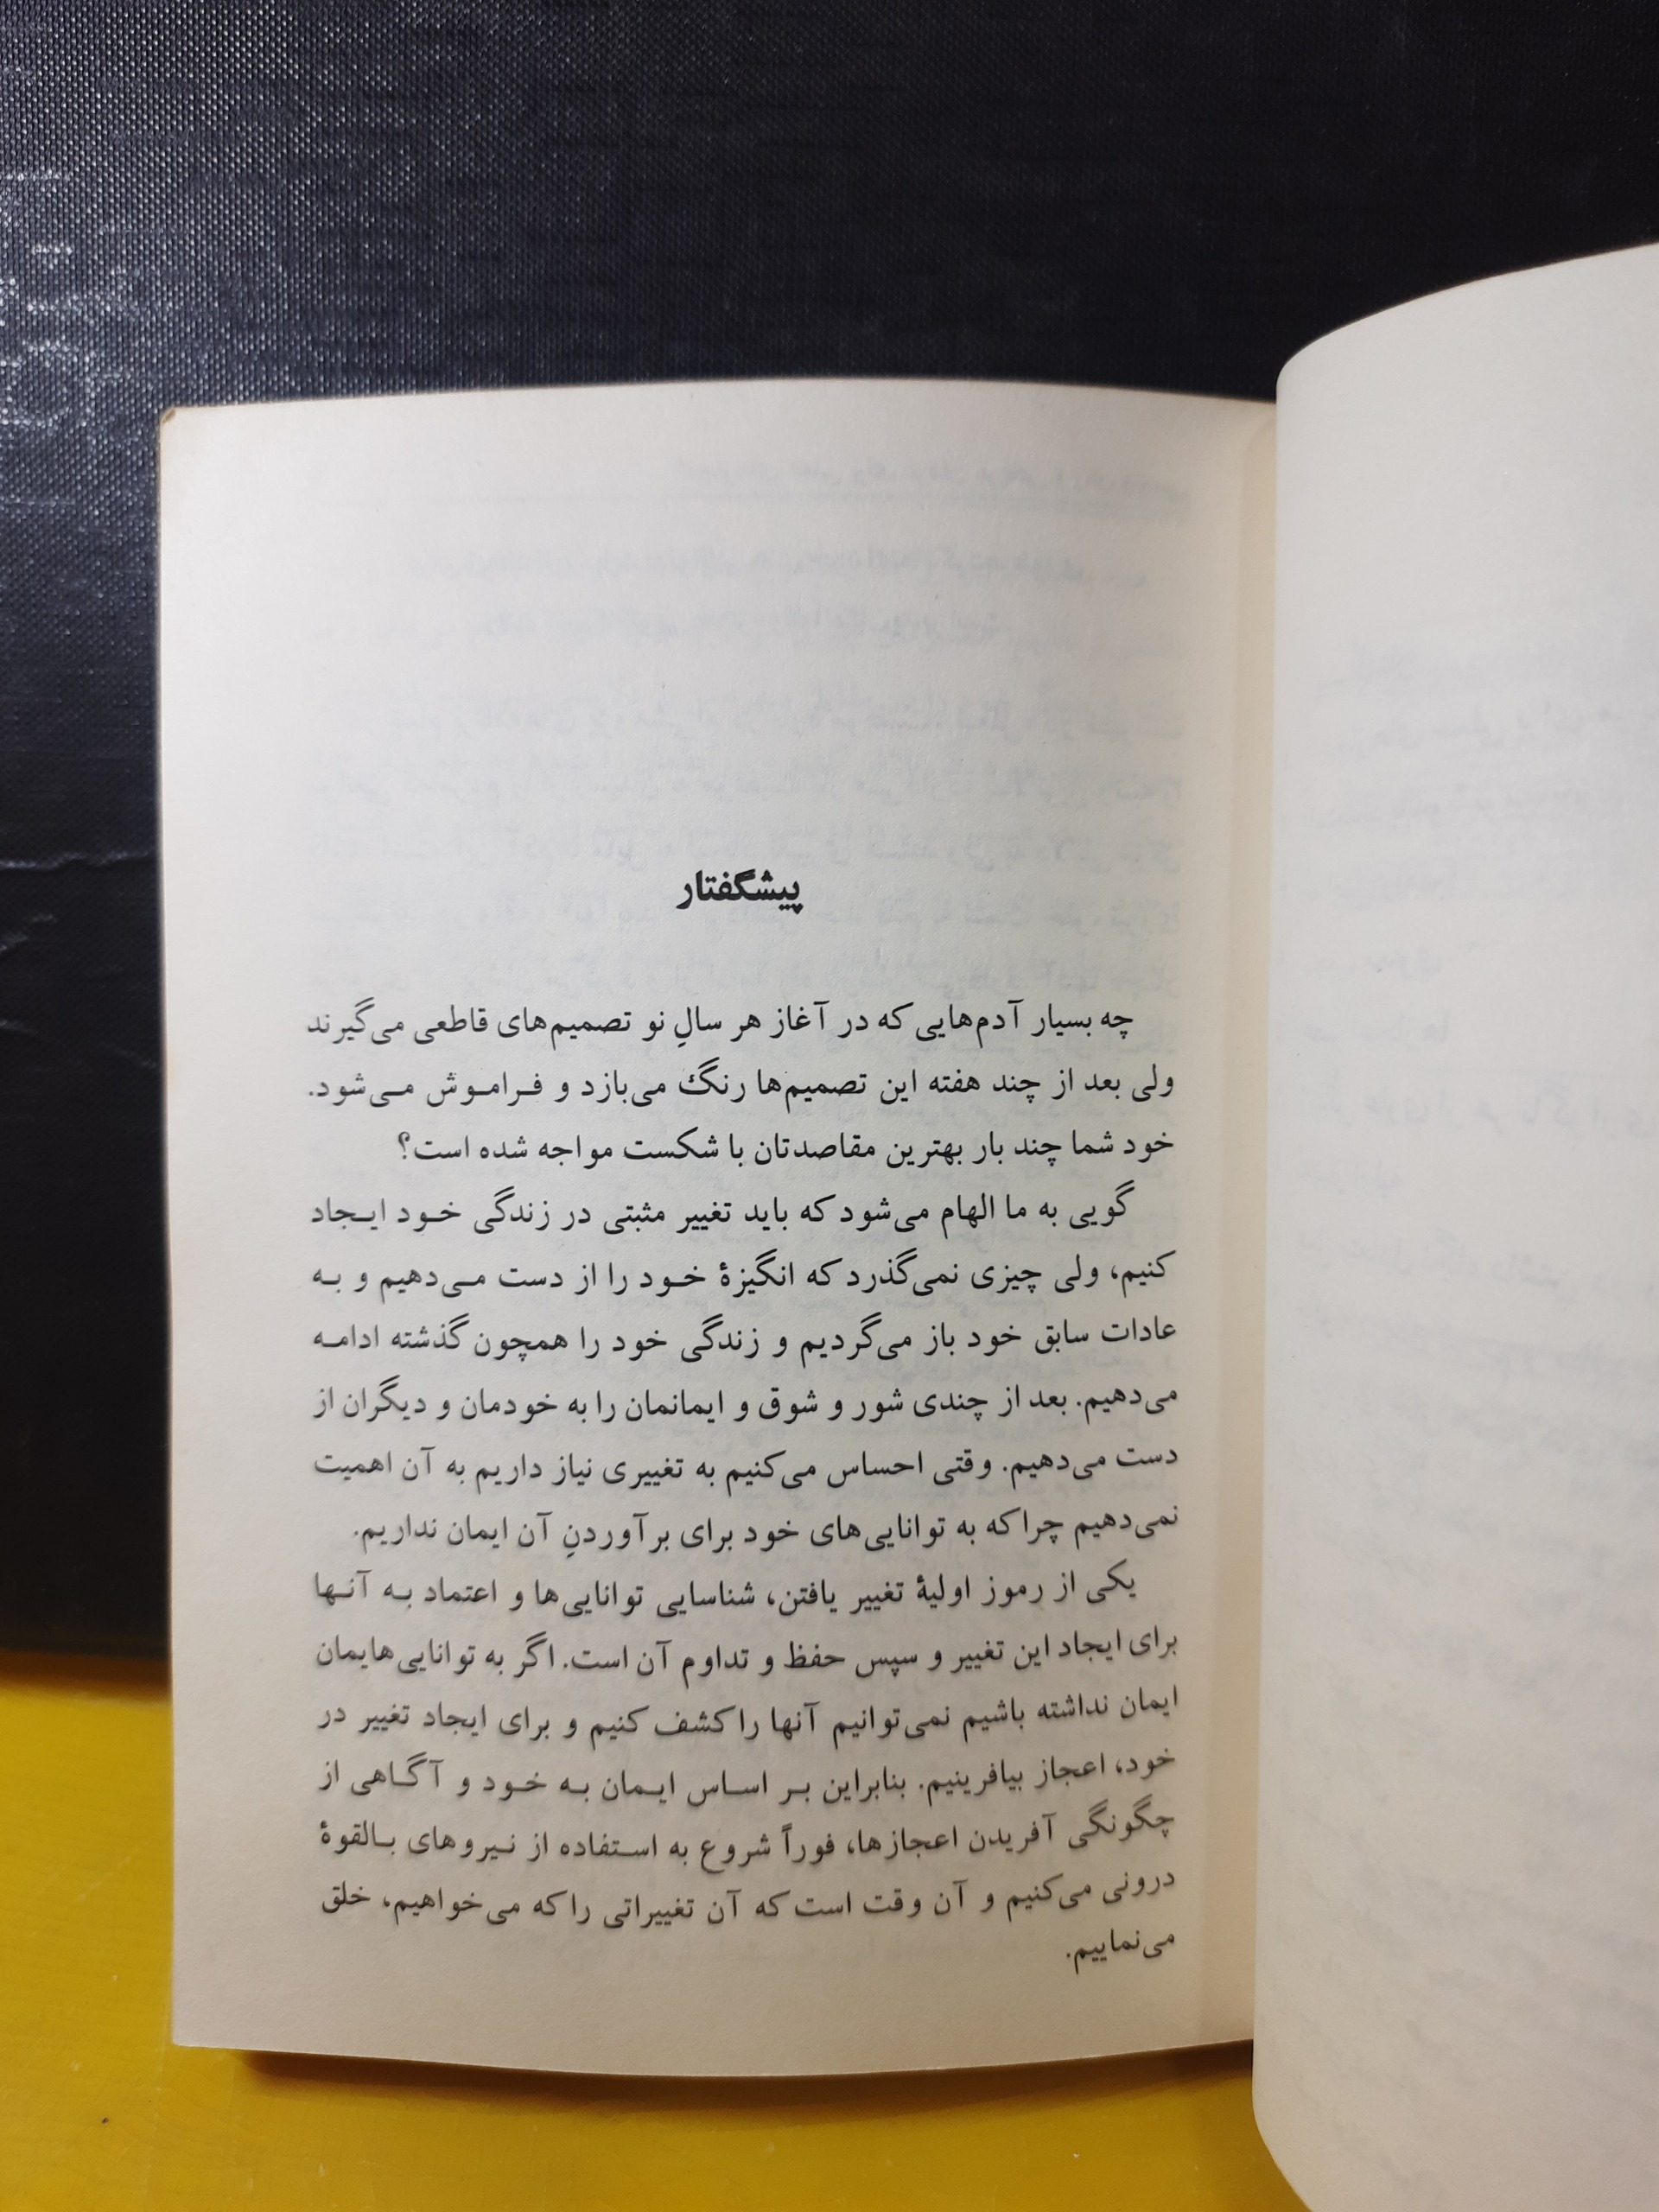 پیشگفتار
چه بسیار آدم‌هایی که در آغاز هر سالِ نو تصمیم‌های قاطعی می‌گیرند
ولی بعد از چند هفته این تصمیم‌ها رنگ می‌بازد و فراموش می‌شود.
خود شما چند بار بهترین مقاصدتان با شکست مواجه شده است؟
گویی به ما الهام می‌شود که باید تغییر مثبتی در زندگی خود ایجاد
کنیم، ولی چیزی نمی‌گذرد که انگیزهٔ خود را از دست می‌دهیم و به
عادات سابق خود باز می‌گردیم و زندگی خود را همچون گذشته ادامه
می‌دهیم. بعد از چندی شور و شوق و ایمانمان را به خودمان و دیگران از
دست می‌دهیم. وقتی احساس می‌کنیم به تغییری نیاز داریم به آن اهمیت
نمی‌دهیم چراکه به توانایی‌های خود برای برآوردنِ آن ایمان نداریم.
یکی از رموز اولیهٔ تغییر یافتن، شناسایی توانایی‌ها و اعتماد به آنها
برای ایجاد این تغییر و سپس حفظ و تداوم آن است. اگر به توانایی‌هایمان
ایمان نداشته باشیم نمی‌توانیم آنها را کشف کنیم و برای ایجاد تغییر در
خود، اعجاز بیافرینیم. بنابراین بر اساس ایمان به خود و آگاهی از
چگونگی آفریدن اعجازها، فوراً شروع به استفاده از نیروهای بالقوهٔ
درونی می‌کنیم و آن وقت است که آن تغییراتی را که می‌خواهیم، خلق
می‌نماییم.